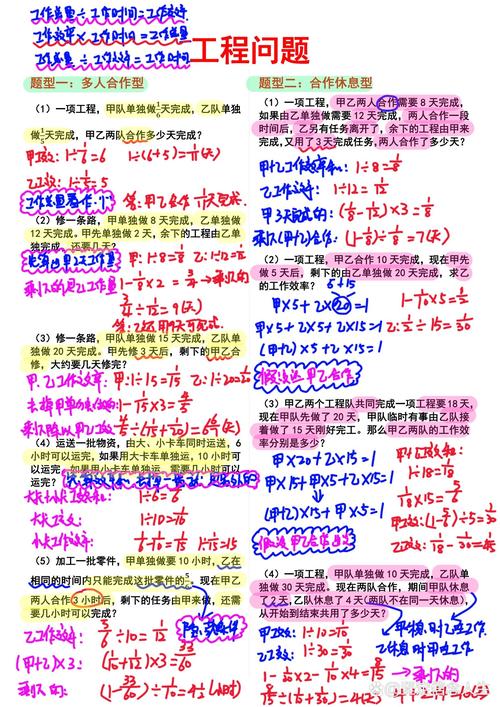 工作总量÷工作时间=工作效率
工作效率×工作时间=工作总量
工作总量÷工作效率=工作时间
工程问题
题型一：多人合作型
（1）一项工程，甲队单独做1/6天完成，乙队单独
做1/5天完成，甲乙两队合作多少天完成？
甲工效：1÷1/6=6
1÷(6+5)=1/11(天)
乙工效：1÷1/5=5
工作总量看作"1"
答：甲乙合作1/11天完成.
（2）修一条路，甲单独做 8 天完成，乙单独做
12 天完成。甲先单独做 2 天，余下的工程由乙单
独完成，还要几天？
甲：1÷8=1/8 乙：1÷12=1/12
1-1/8×2=3/4→剩下的
剩下的用乙工作量
3/4÷1/12=9(天)
（3）修一条路，甲队单独做 15 天完成，乙队单
独做 20 天完成。甲先修 3 天后，剩下的甲乙合
修，大约要几天修完？
甲、乙工作效率：甲：1÷15=1/15 乙：1÷20=1/20
1-1/15×3=4/5
4/5÷(1/15+1/20)=6 6/7(天)
（4）运送一批物资，由大、小卡车同时运送，6
小时可以运完，如果用大卡车单独运，10 小时可
以运完。如果用小卡车单独运，需要几小时可以
运完？
1÷6=1/6
大卡工效：
1÷10=1/10
小卡工作效率：
1/6-1/10=1/15 1÷1/15=15
（5）加工一批零件，甲单独做要 10 小时，乙在
相同的时间内只能完成这批零件的5/6。现在甲乙
两人合作 3 小时后，剩下的任务由甲来做，还需
要几小时可以完成？
乙工作效率：5/6÷10=1/12
(甲+乙)×3：(1/10+1/12)×3=33/60
剩下的：(1-33/60)÷1/10=4 1/2(小时)
题型二：合作休息型
（1）一项工程，甲乙两人合作需要 8 天完成，
如果由乙单独做需要 12 天完成，两人合作一段
时间后，乙另有任务离开了，余下的工程由甲来
完成，又用了 3 天完成任务，两人合作了多少天？
甲+乙工作效率和：1÷8=1/8
乙工作效率：1÷12=1/12
甲3天完成的：(1/8-1/12)×3=1/8
剩下(甲+乙)合作：(1-1/8)÷1/8=7(天)
（2）一项工程，甲乙合作 10 天完成，现在甲先
做 5 天后，剩下的由乙单独做 20 天完成，求乙
的工作效率？
5+15
甲×5+乙×20=1
1-1/10×5=1/2
甲×5+乙×5+乙×15=1
乙：1/2÷15=1/30
(甲+乙)×5+乙×15=1
假设法甲乙合作
（3）甲乙两个工程队共同完成一项工程要18天，
现在甲队先做了 20 天，甲队临时有事由乙队接
着做了 15 天刚好完工。那么甲乙两队的工作效
率分别是多少？
甲×20+乙×15=1
1÷18=1/18
甲×15+甲×5+乙×15=1
1/18×15=5/6
(甲+乙)×15+甲×5=1
甲：(1-5/6)÷5=1/30
乙：1/18-1/30=1/45
假设法甲乙合作
（4）一项工程，甲队单独做 10 天完成，乙队单
独做 30 天完成。现在两队合作，期间甲队休息
了 2天，乙队休息了 4天（两队不在同一天休息），
从开始到结束共用了多少天？
甲工效：
1÷10=1/10
甲休息时乙在工作.
乙工效：
1÷30=1/30
乙休息时甲在工作.
1-1/30×2-1/10×4=8/15→剩下的
8/15÷(1/10+1/30)=4(天)
4+2+4=10(天)